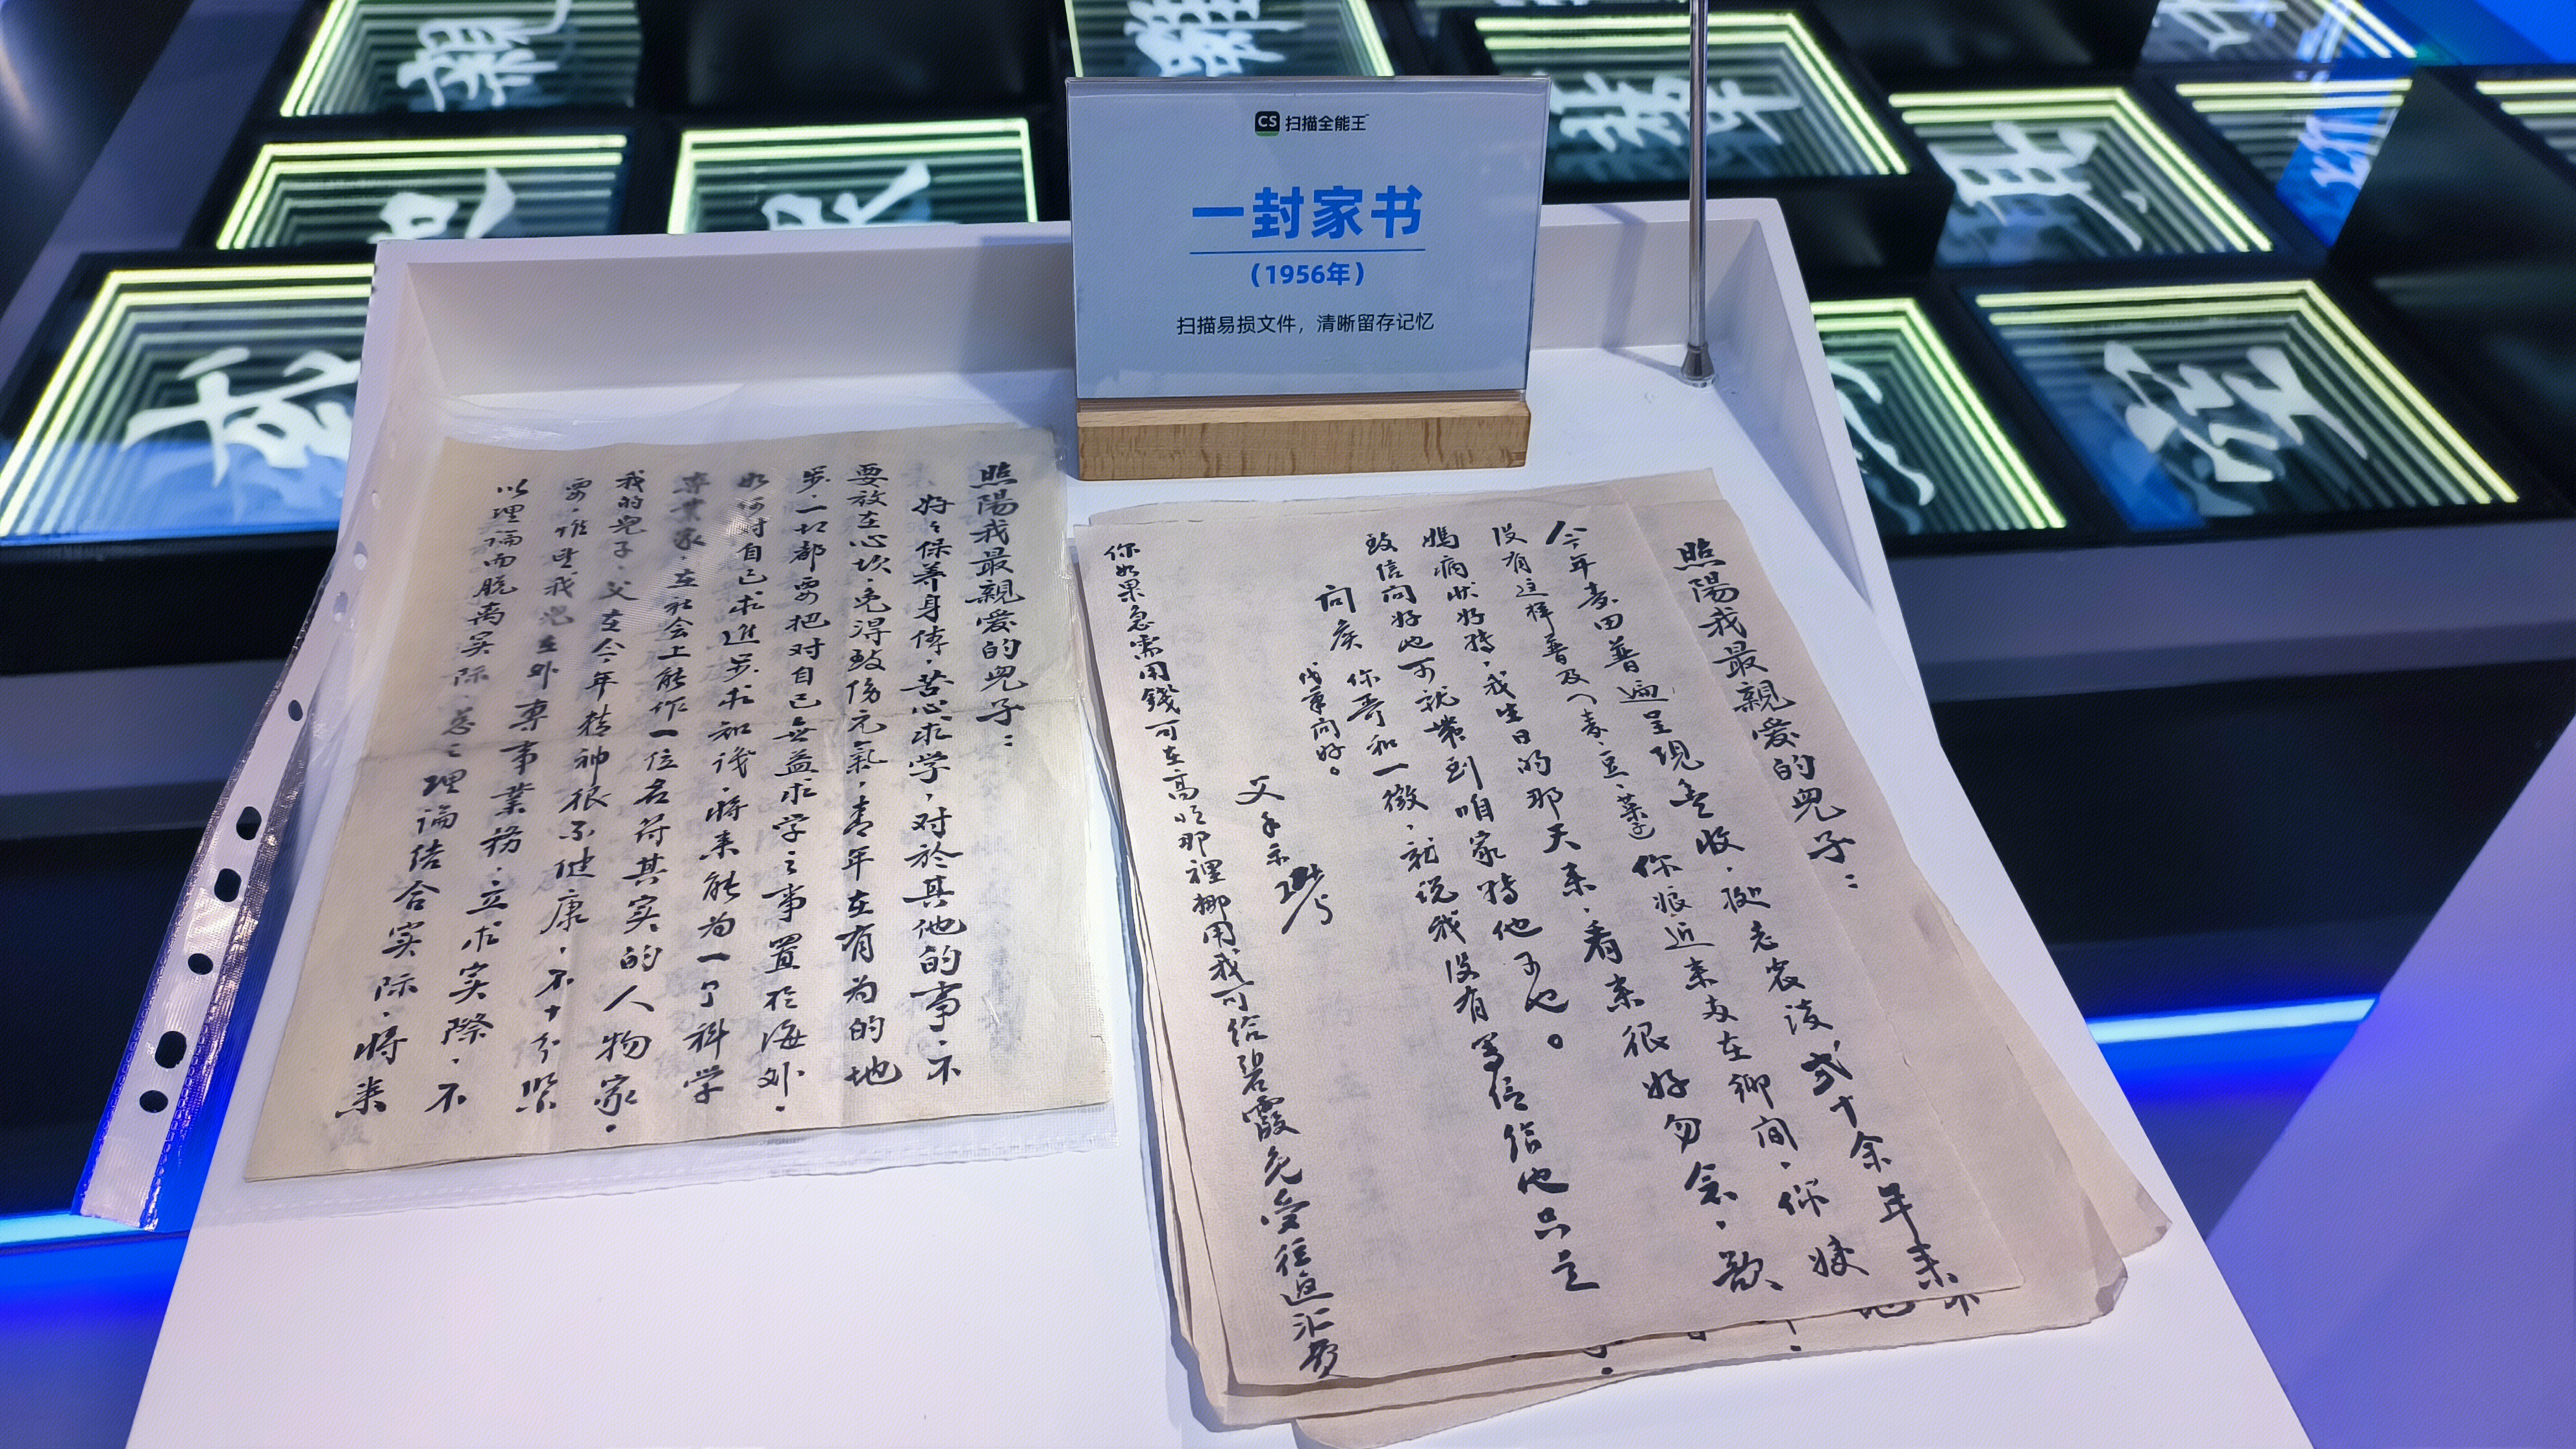 CS 扫描全能王
一封家书
(1956年)
扫描易损文件，清晰留存记忆
照陽我最親爱的兒子：
好々保养身体，苦心求学，对於其他的事，不
要放在心坎，免得致伤元氣，青年在有为的地
步，一切都要把对自己無益求学之事置於海外，
如何对自己求進步求知识，将来能为一个科学
專業家，在社会上能作一位名符其实的人物家，
我的兒子，父在今年精神很不健康，不十分紧
要，惟望我兒在外專事業務，立求实際，不
以理論而脱离实际，总之理論结合实际，将来
照陽我最親爱的兒子：
今年麦田普遍呈现丰收，挺老农谈贰十余年来
没有这样普及（麦、豆、菜）你娘近来亦在鄉间，你嫂
媽病状好轉，我生日的那天来，看来很好勿念，歆
致信问好也可就带到咱家轉他可也。
向候 你哥和一徵，就说我没有写信给他只之
代筆问好。
父手示
你如果急需用錢可在高順那裡挪用我可给碧霞免受往返汇费